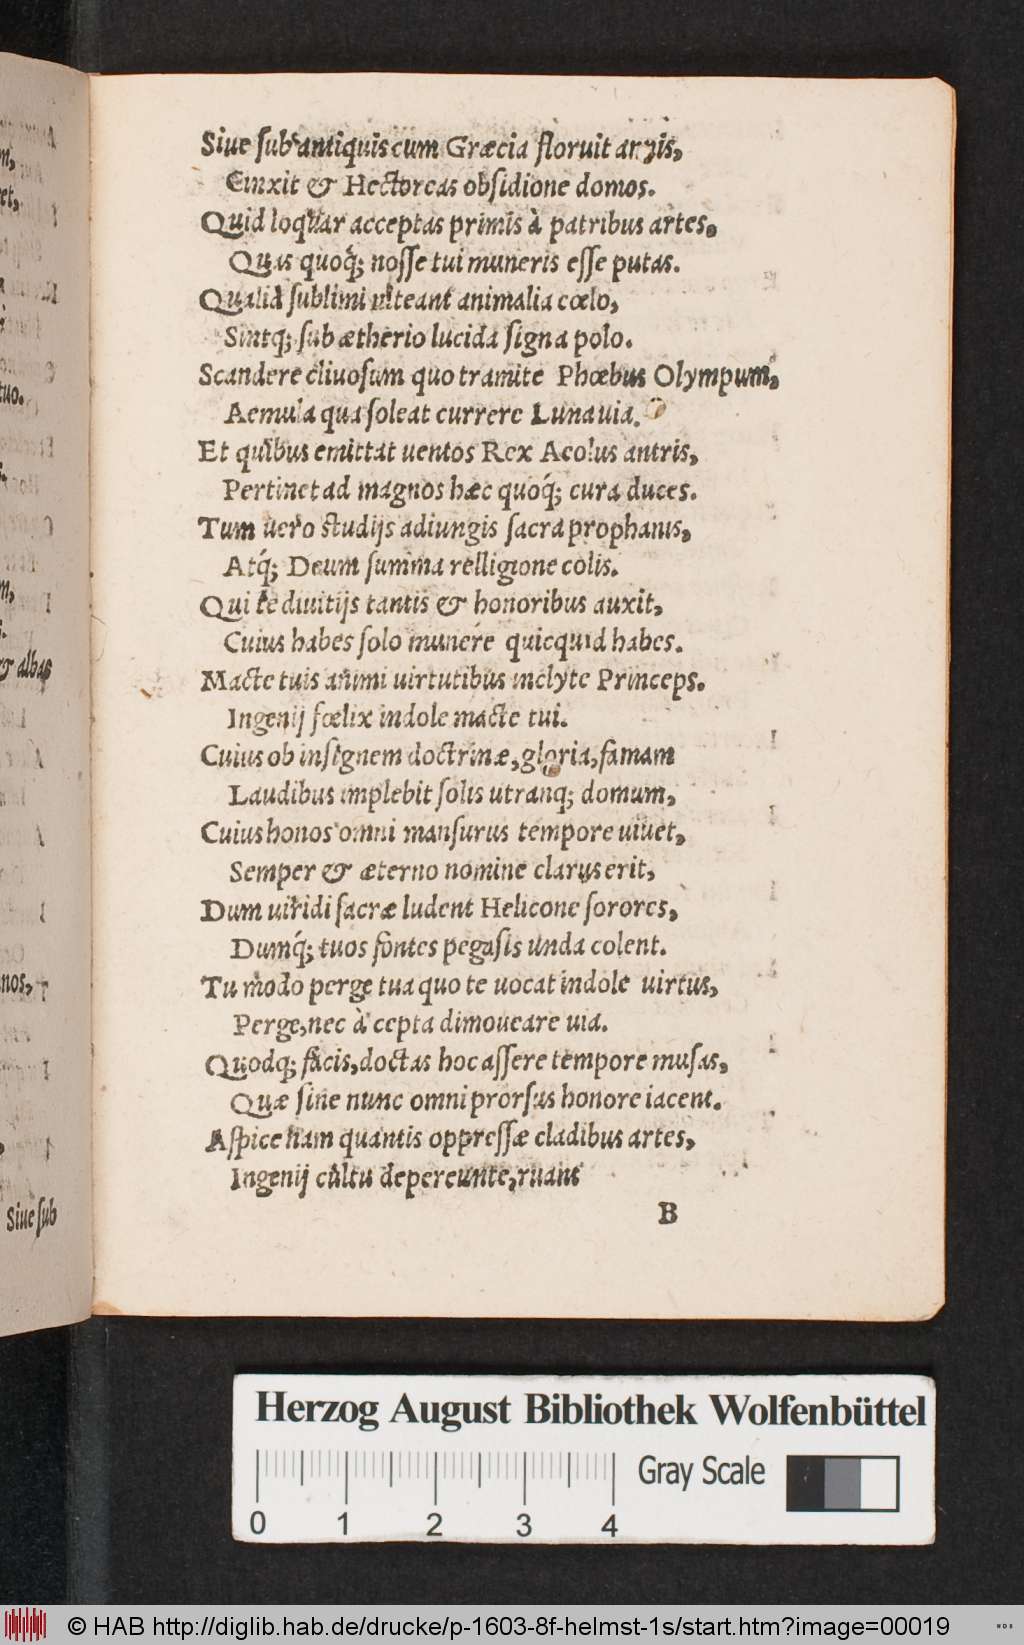 Siue ſub antiquis cum Græcia floruit argis,
Cinxit & Hectoreas obſidione domos.
Quid loquar acceptas primis à patribus artes.
Quas quoq́; noſſe tui muneris eſſe putas.
Qualia ſublimi niteant animalia cœlo,
Sintq; ſub ætherio lucida ſigna polo.
Scandere cliuoſum quo tramite Phœbus Olympum,
Aemula qua ſoleat currere Luna uia.
Et quibus emittat uentos Rex Aeolus antris,
Pertinet ad magnos hæc quoq́; cura duces.
Tum uero ſtudijs adiungis ſacra prophanis,
Atq́; Deum ſumma relligione colis.
Qui te diuitijs tantis & honoribus auxit,
Cuius habes ſolo munere quicquid habes.
Macte tuis animi uirtutibus inclyte Princeps.
Ingenij fœlix indole macte tui.
Cuius ob inſignem doctrinæ, gloria, famam
Laudibus implebit ſolis utranq; domum,
Cuius honos omni manſurus tempore uiuet,
Semper & æterno nomine clarus erit,
Dum uiridi ſacræ ludent Helicone ſorores,
Dumq́; tuos fontes pegaſis unda colent.
Tu modo perge tua quo te uocat indole uirtus,
Perge, nec à cepta dimoueare uia.
Quodq; facis, doctas hoc aſſere tempore muſas,
Quæ ſine nunc omni prorſus honore iacent.
Aſpice nam quantis oppreſſæ cladibus artes,
Ingenij cultu depereunte, ruant
B
tuo.
& albas
nos,
Siue ſub
Herzog August Bibliothek Wolfenbüttel
Gray Scale
0 1 2 3 4
© HAB http://diglib.hab.de/drucke/p-1603-8f-helmst-1s/start.htm?image=00019